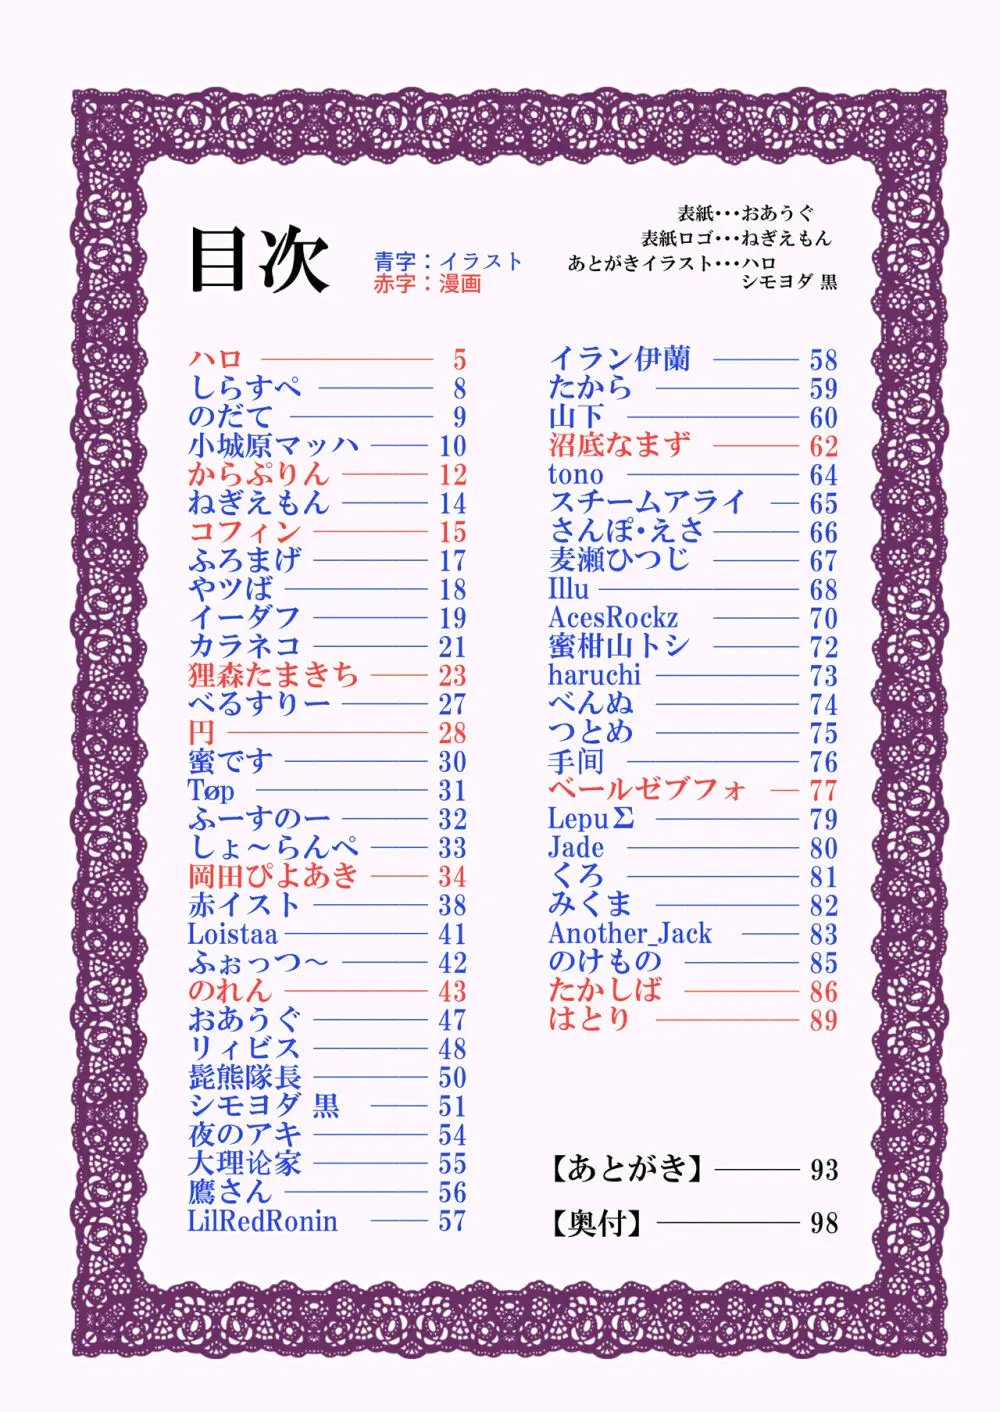 目次
青字：イラスト
赤字：漫画
表紙・・・おあうぐ
表紙ロゴ・・・ねぎえもん
あとがきイラスト・・・ハロ
シモヨダ 黒
ハロ 5
しらすぺ 8
のだて 9
小城原マッハ 10
からぷりん 12
ねぎえもん 14
コフィン 15
ふろまげ 17
やツば 18
イーダフ 19
カラネコ 21
狸森たまきち 23
べるすりー 27
円 28
蜜です 30
Tøp 31
ふーすのー 32
しょ～らんぺ 33
岡田ぴよあき 34
赤イスト 38
Loistaa 41
ふぉっつ～ 42
のれん 43
おあうぐ 47
リィビス 48
髭熊隊長 50
シモヨダ 黒 51
夜のアキ 54
大理论家 55
鷹さん 56
LilRedRonin 57
イラン伊蘭 58
たから 59
山下 60
沼底なまず 62
tono 64
スチームアライ 65
さんぽ・えさ 66
麦瀬ひつじ 67
Illu 68
AcesRockz 70
蜜柑山トシ 72
haruchi 73
べんぬ 74
つとめ 75
手间 76
ベールゼブフォ 77
LepuΣ 79
Jade 80
くろ 81
みくま 82
Another_Jack 83
のけもの 85
たかしば 86
はとり 89
【あとがき】 93
【奥付】 98